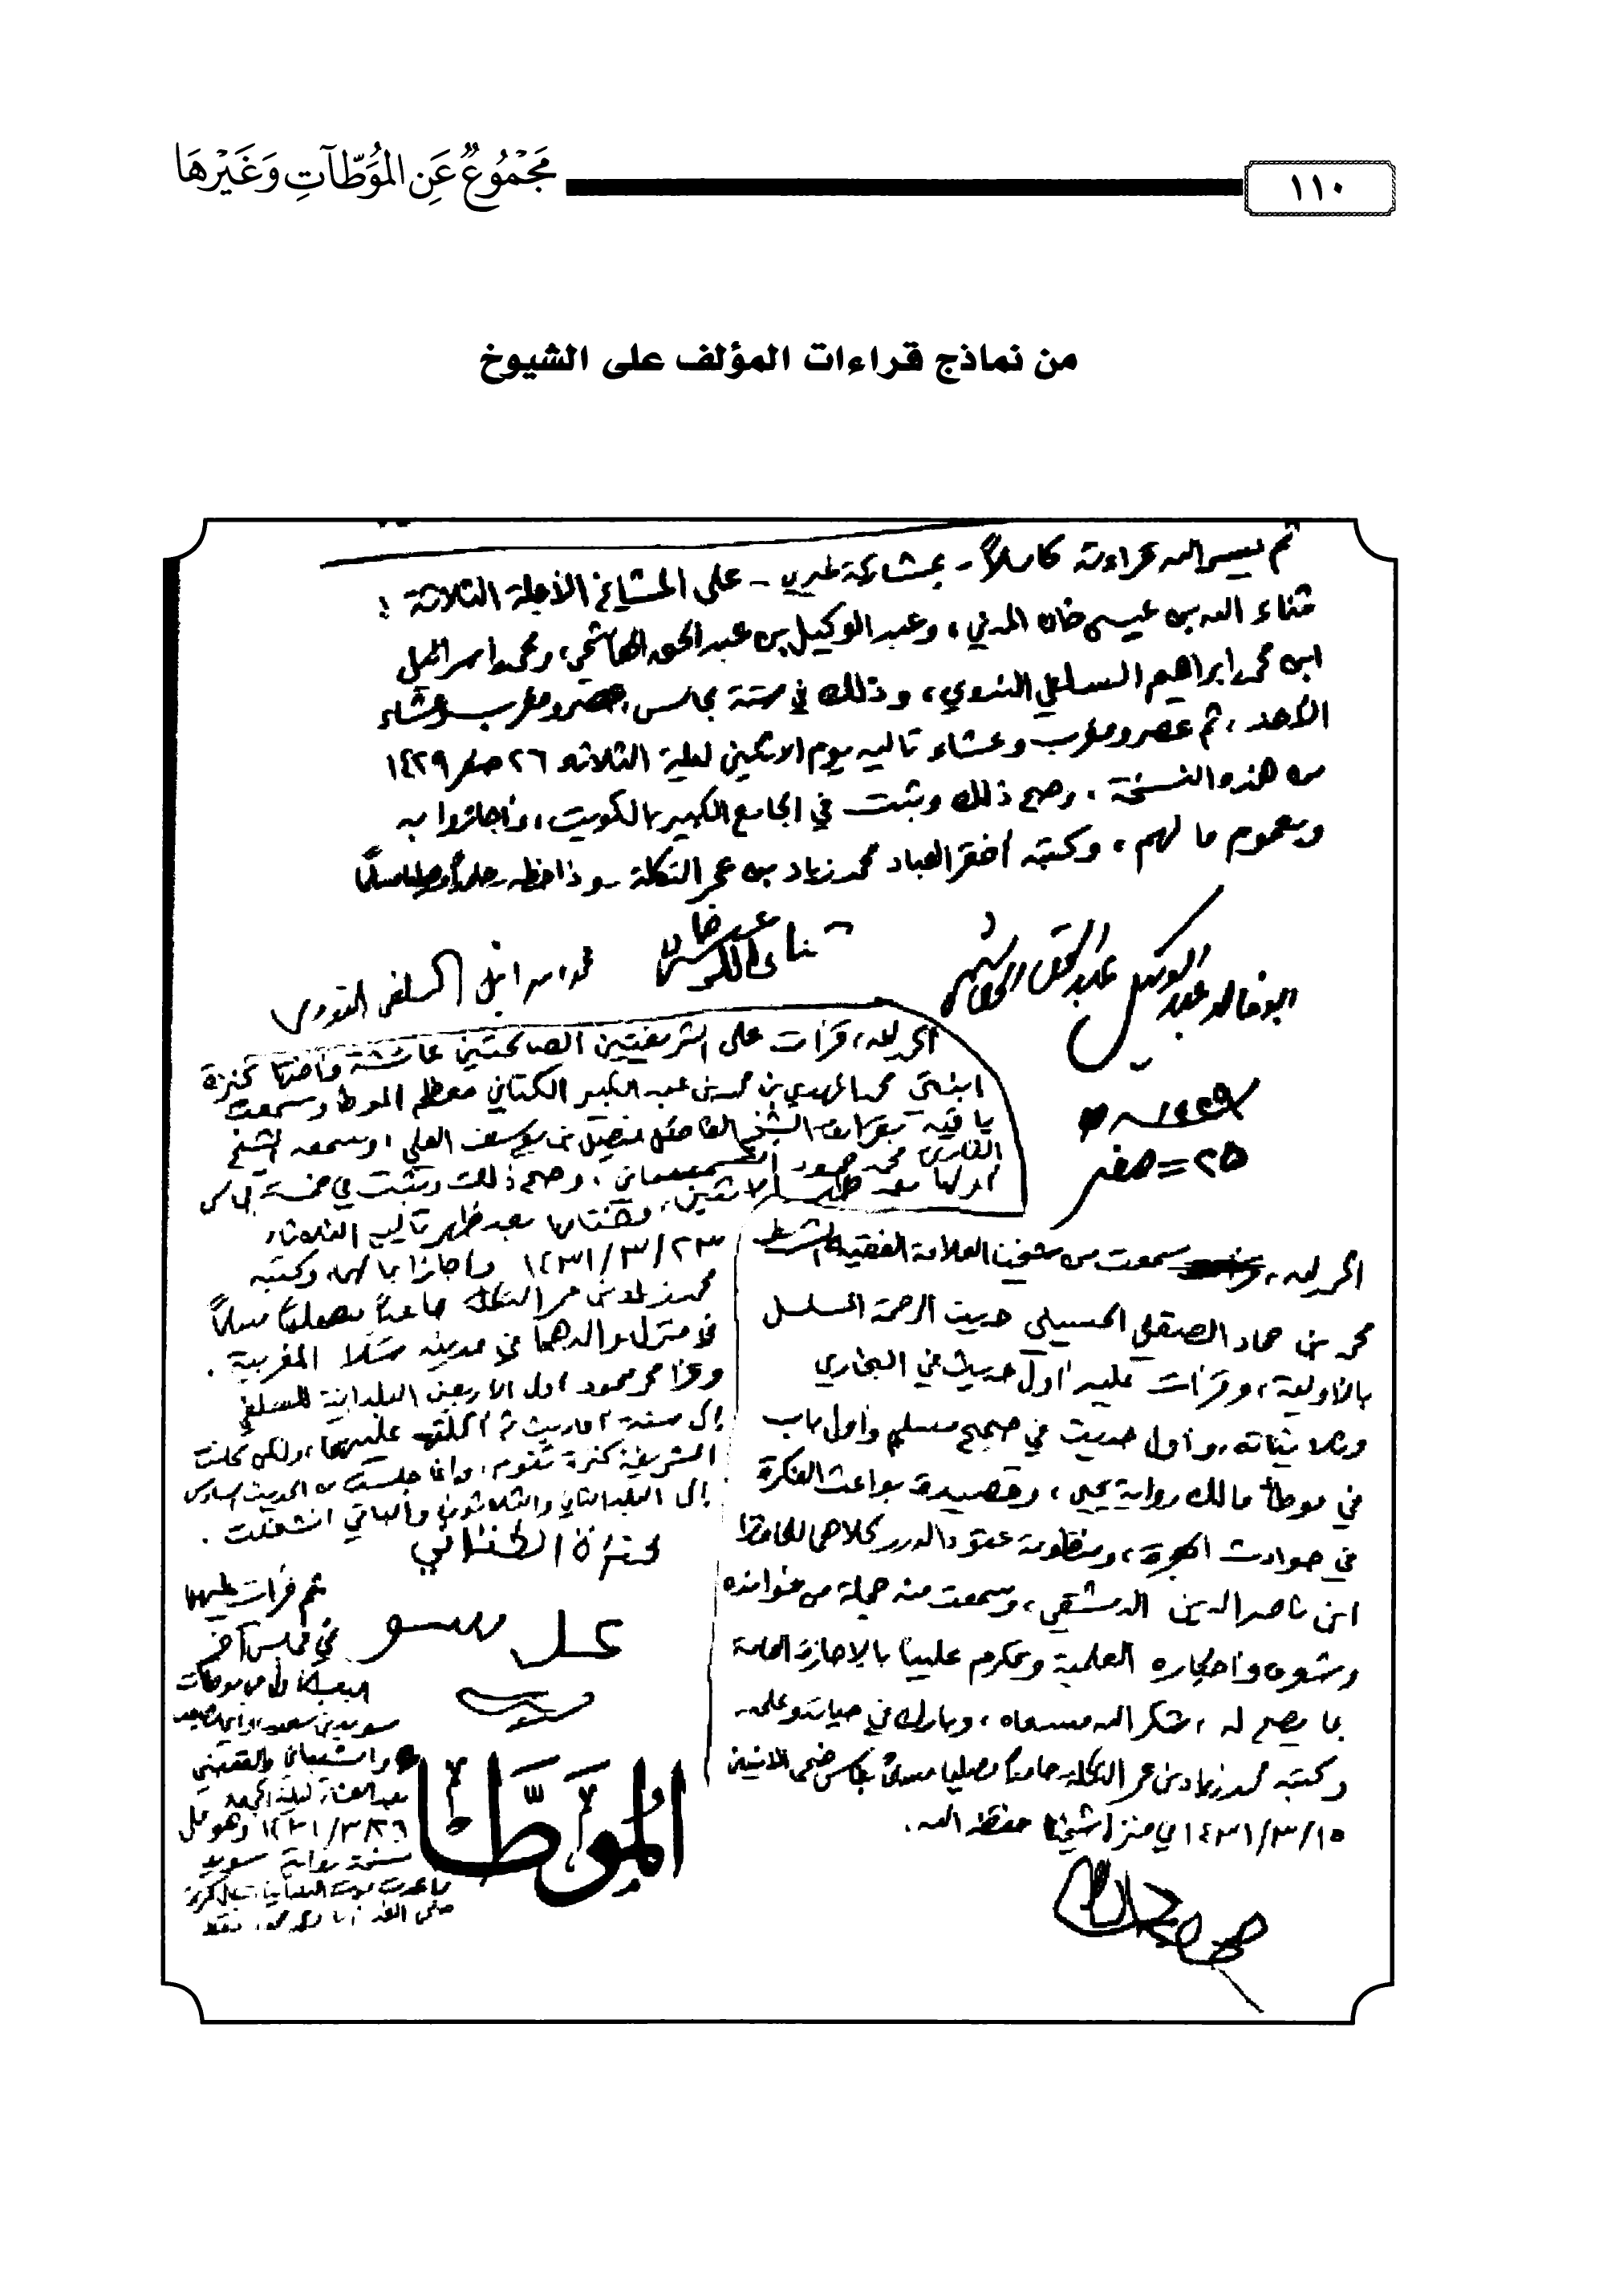 مَجْمُوعٌ عَنِ المُوَطَّآتِ وَغَيْرِهَا
١١٠
من نماذج قراءات المؤلف على الشيوخ
ثم يسر الله قراءته كاملاً - بمشاركة لغيري - على المشايخ الأجلة الثلاثة:
ثناء الله بن عيسى خان المدني، وعبد الوكيل بن عبد الحق الهاشمي، ومحمد إسرائيل
ابن محمد إبراهيم السلفي الندوي، وذلك في ستة مجالس، عصر ومغرب وعشاء
الأحد، ثم عصر ومغرب وعشاء تاليه يوم الاثنين ليلة الثلاثاء ٢٦ صفر ١٤٢٩
من هذه النسخة، وصح ذلك وثبت في الجامع الكبير بالكويت، وأجازوا به
وبعموم ما لهم، وكتبه أفقر العباد محمد زياد بن عمر التكلة
ثناء الله عيسى خان
محمد اسرائيل السلفي الندوي
ابو خالد عبد الوكيل عبد الحق الهاشمي
١٤٢٩
٢٥ = صفر
الحمد لله، قرأت على الشريفتين الصالحتين عائشة وأختها كنزة
ابنتي محمد المهدي بن محمد بن عبد الكبير الكتاني معظم الموطأ وسمعت
باقيه بقراءة الشيخ الفاضل فيصل بن يوسف العلي، وسمعه الشيخ
القارئ محمد محمود، وصح ذلك وثبت في خمسة مجالس
أولها بعد ظهر الاثنين، وختامها بعد ظهر تاليه الثلاثاء
٢٣/٣/١٤٣١ وأجازا بما لهما، وكتبه
محمد زياد بن عمر التكلة حامداً مصلياً مسلماً
في منزل والدهما في مدينة سلا المغربية.
وقرأ محمد محمود أول الأربعين البلدانية للسلفي
إلى ستة أحاديث ثم أكملتها عليهما، ولكن كانت
الشريفة كنزة تقوم، وإنما جلست من الحديث السادس
إلى البلد الثاني والثلاثون والباقي انشغلت.
كنزة الكتاني
ثم قرأت عليهما
في مجلس آخر
سويد بن سعيد
والشيباني والقعنبي
بعد العشاء ليلة الجمعة
٢٦/٣/١٤٣١ وهو على
نسخة رواية سويد
المُوَطَّأ
الحمد لله، سمعت من شيخنا العلامة الفقيه الشريف
محمد بن حماد الصقلي الحسيني حديث الرحمة المسلسل
بالأولية، وقرأت عليه أول حديث في البخاري
وثلاثياته، وأول حديث في صحيح مسلم وأول باب
في موطأ مالك رواية يحيى، وقصيدة بواعث الفكرة
في حوادث الهجرة، ومنظومة عقود الدرر كلاهما للحافظ
ابن ناصر الدين الدمشقي، وسمعت منه جملة من فوائده
وشعره وأخباره العلمية وتكرم علينا بالإجازة العامة
بما يصح له، شكر الله مسعاه، وبارك في حياته وعلمه
وكتبه محمد زياد بن عمر التكلة حامداً مصلياً مسلماً بمجلس ضحى الاثنين
١٥/٣/١٤٣١ في منزل شيخنا حفظه الله.